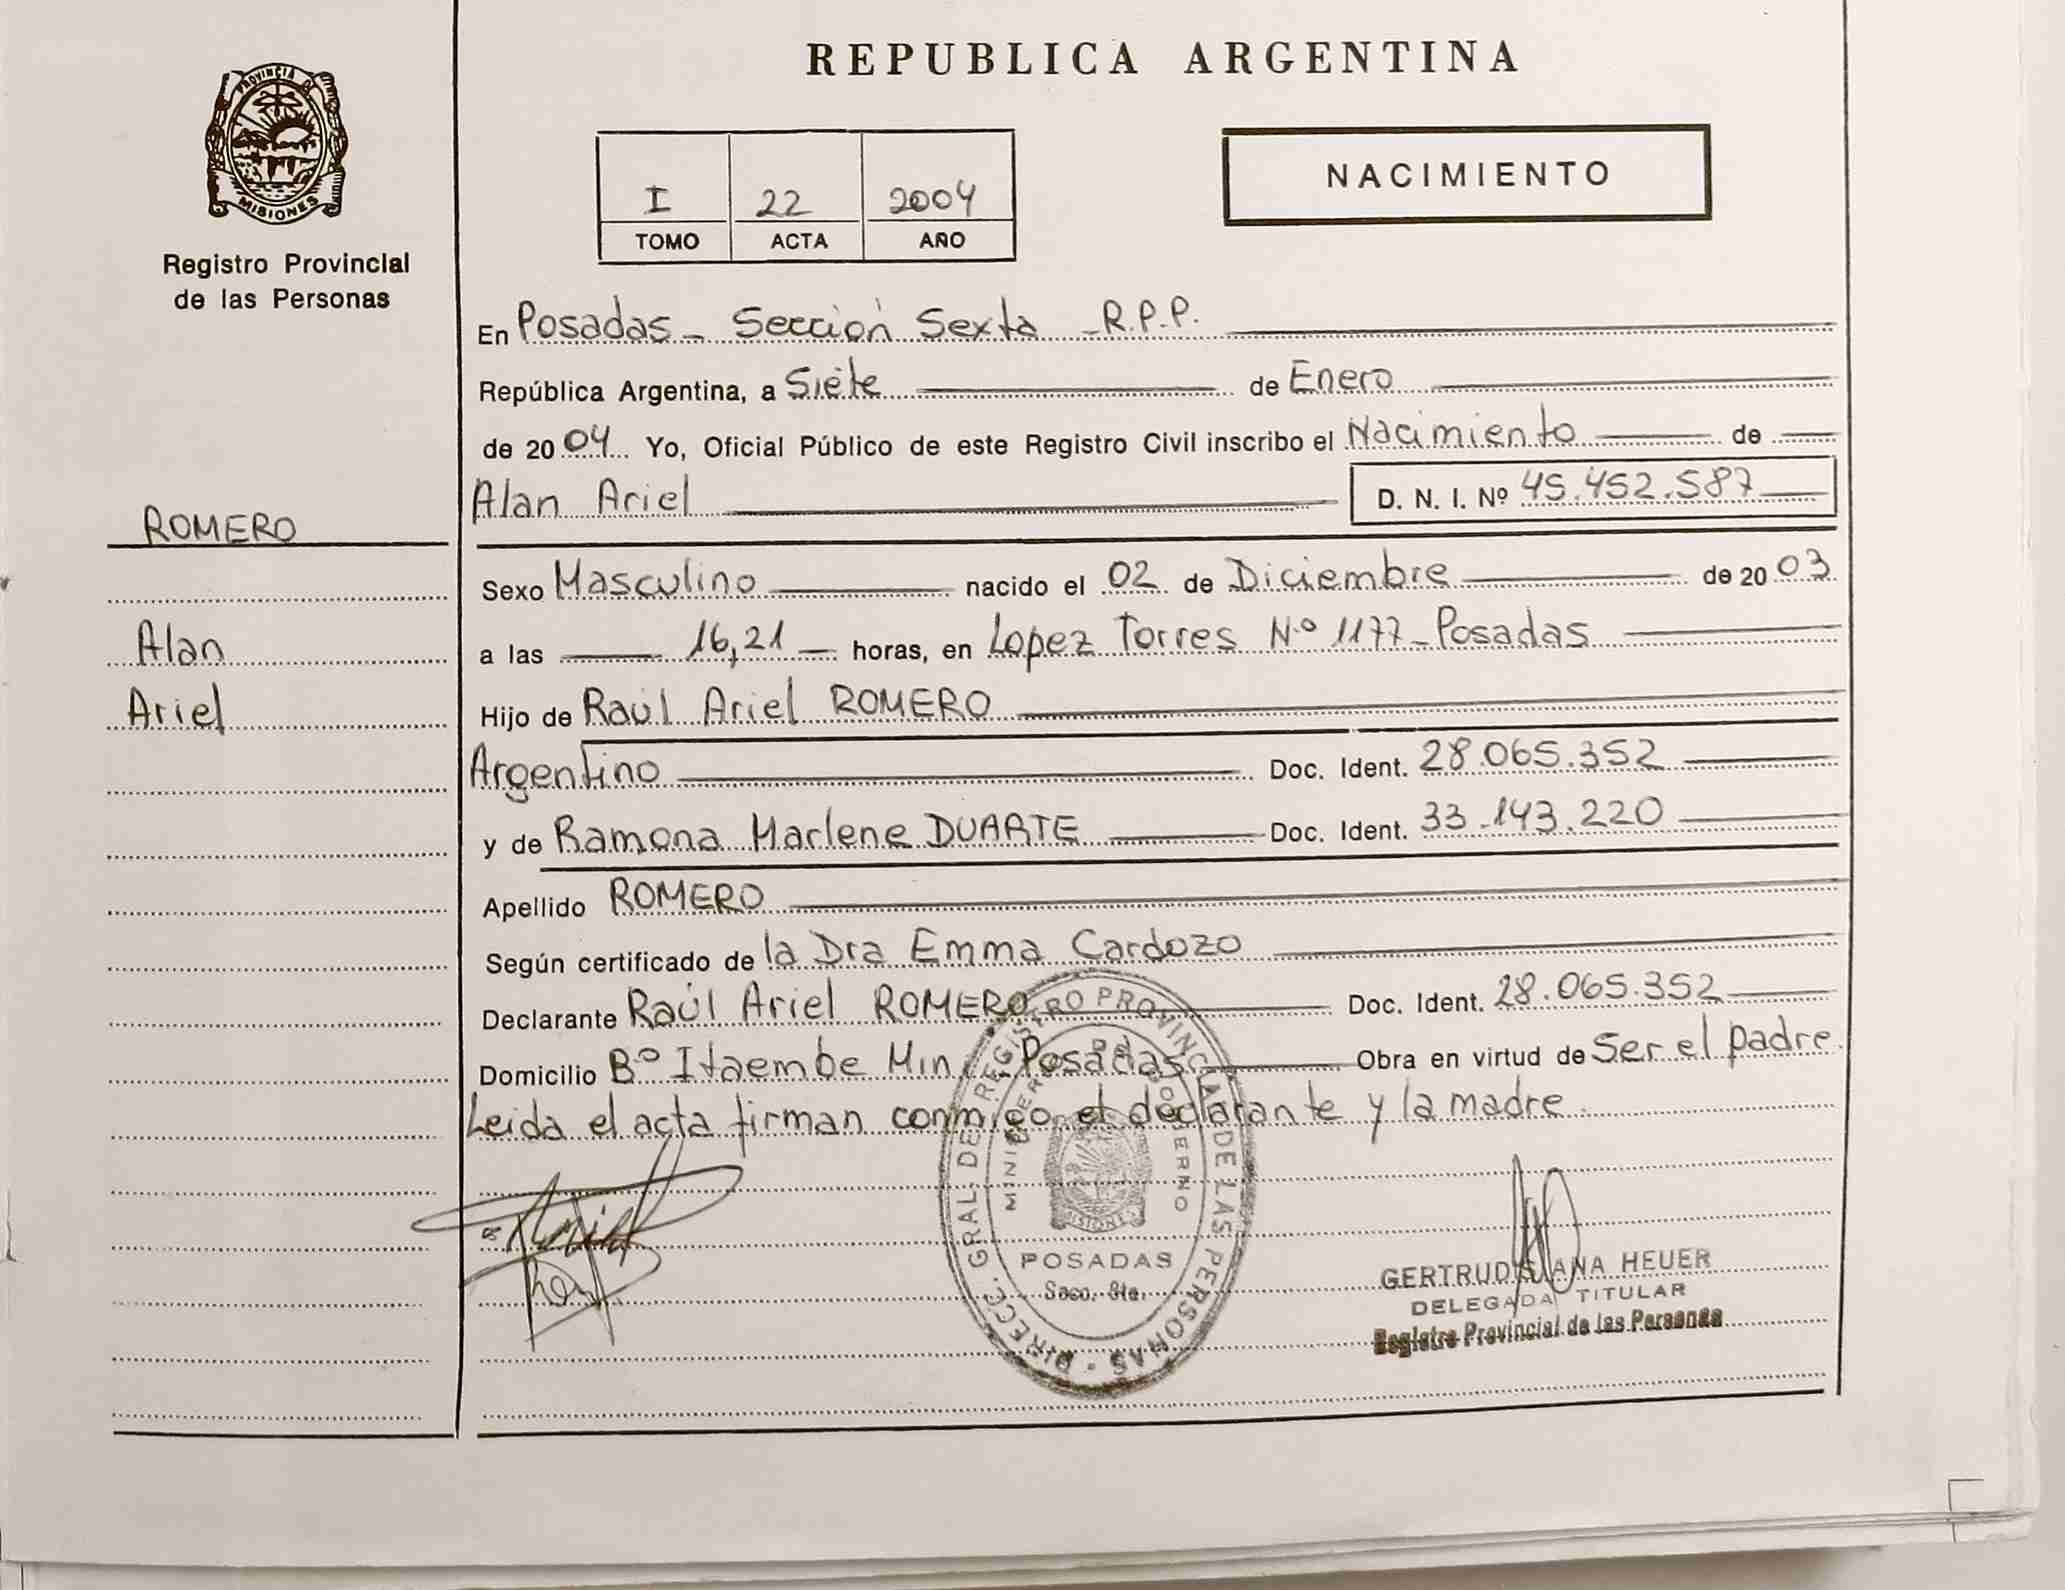 REPUBLICA ARGENTINA
PROVINCIA DE
MISIONES
Registro Provincial
de las Personas
I 22 2004
TOMO ACTA AÑO
NACIMIENTO
En Posadas - Sección Sexta - R.P.P.
República Argentina, a Siete de Enero
de 2004 Yo, Oficial Público de este Registro Civil inscribo el Nacimiento de
Alan Ariel D. N. I. Nº 45.452.587
ROMERO
Sexo Masculino nacido el 02 de Diciembre de 2003
Alan
a las 16,21 horas, en Lopez Torres N.º 1177 - Posadas
Ariel
Hijo de Raúl Ariel ROMERO
Argentino Doc. Ident. 28.065.352
y de Ramona Marlene DUARTE Doc. Ident. 33.143.220
Apellido ROMERO
Según certificado de la Dra Emma Cardozo
Declarante Raúl Ariel ROMERO Doc. Ident. 28.065.352
Domicilio Bº Itaembe Min Posadas Obra en virtud de Ser el padre.
Leida el acta firman conmigo el declarante y la madre.
DIRECC. GRAL. DE REGISTRO PROVINCIAL DE LAS PERSONAS
MINISTERIO DE GOBIERNO
MISIONES
POSADAS
Secc. 6ta.
GERTRUDIS ANA HEUER
DELEGADA TITULAR
Registro Provincial de las Personas